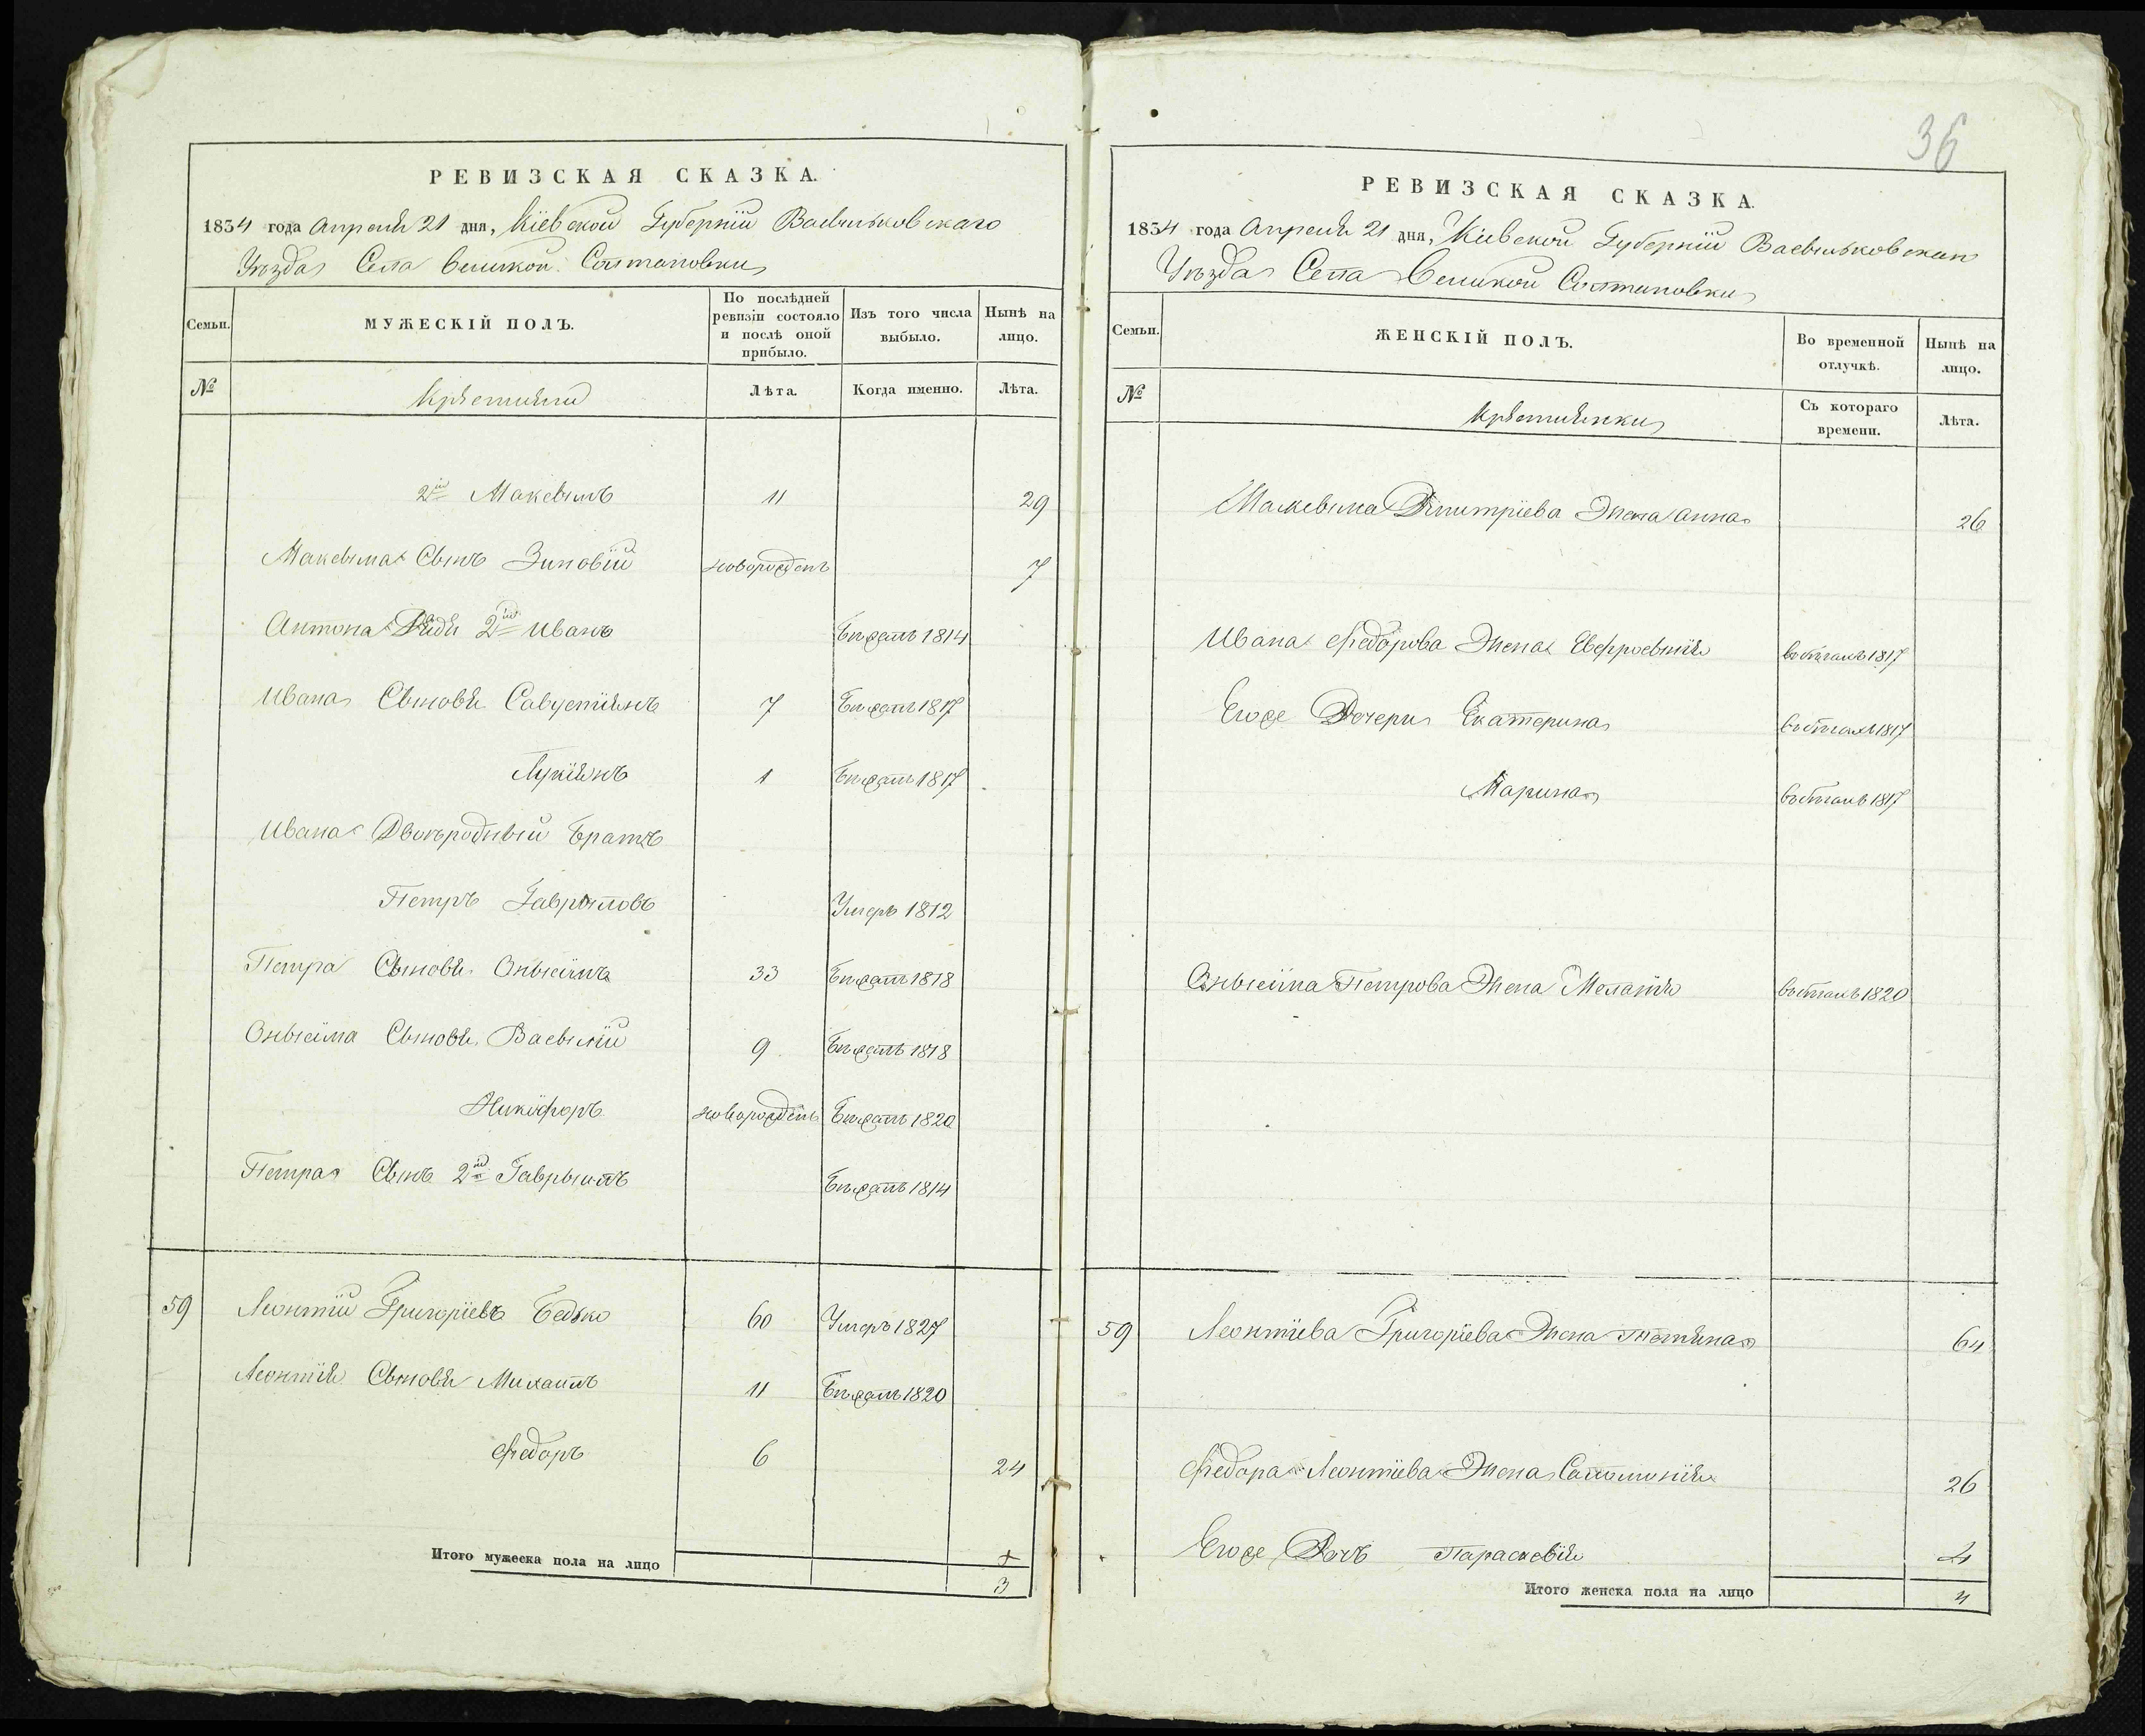 РЕВИЗСКАЯ СКАЗКА.
1834 года Апреля 21 дня, Кіевской Губерніи Васыльковскаго
Уѣзда Села Великой Солтановки
Семьи.
МУЖЕСКІЙ ПОЛЪ.
По послѣдней ревизіи состояло и послѣ оной прибыло.
Изъ того числа выбыло.
Нынѣ на лицо.
№
Крѣстияни
Лѣта.
Когда именно.
Лѣта.
2й Максымъ 11 29
Максыма Сынъ Зиновій новорожденъ 7
Антона Дядя 2й Иванъ Бѣжалъ 1814
Ивана Сыновя Савустіянъ 7 Бѣжалъ 1817
Лукіянъ 1 Бѣжалъ 1817
Ивана Двоюродный Братъ
Петръ Гаврыловъ Умеръ 1812
Петра Сыновя Онысимъ 33 Бѣжалъ 1818
Онысима Сыновя Васылій 9 Бѣжалъ 1818
Никифоръ новорожденъ Бѣжалъ 1820
Петра Сынъ 2й Гаврыилъ Бѣжалъ 1814
59 Леонтій Григоріевъ Бедько 60 Умеръ 1827
Леонтія Сыновя Михаилъ 11 Бѣжалъ 1820
Федоръ 6 24
Итого мужеска пола на лицо
3
36
РЕВИЗСКАЯ СКАЗКА.
1834 года Апреля 21 дня, Кіевской Губерніи Васыльковскаго
Уѣзда Села Великой Солтановки
Семьи.
ЖЕНСКІЙ ПОЛЪ.
Во временной отлучкѣ.
Нынѣ на лицо.
№
Крѣстиянки
Съ котораго времени.
Лѣта.
Максыма Дмитріева Жена Анна 26
Ивана Федорова Жена Евфросынія въ бѣгахъ 1817
Егоже Дочери Екатерина въ бѣгахъ 1817
Марина въ бѣгахъ 1817
Онысима Петрова Жена Меланія въ бѣгахъ 1820
59 Леонтіева Григоріева Жена Тетяна 64
Федора Леонтіева Жена Саломонія 26
Егоже Дочъ Параскевія 4
Итого женска пола на лицо
4